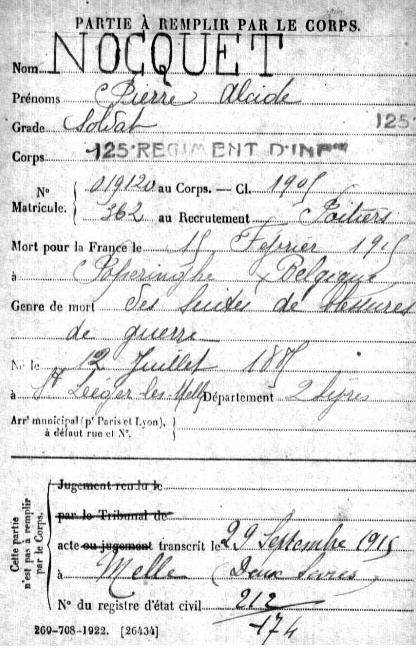 PARTIE À REMPLIR PAR LE CORPS.
Nom NOCQUET
Prénoms Pierre Alcide
Grade Soldat 125
Corps 125 REGIMENT D'INFrie
N° Matricule. 019120 au Corps. — Cl. 1905
362 au Recrutement Poitiers
Mort pour la France le 15 Février 1915
à Poperinghe (Belgique)
Genre de mort des suites de blessures
de guerre
Né le 12 Juillet 1885
à St Léger les Melle Département 2 Sèvres
Arrt municipal (pr Paris et Lyon),
à défaut rue et N°.
Cette partie n'est pas à remplir par le Corps.
Jugement rendu le
par le Tribunal de
acte ou jugement transcrit le 29 Septembre 1915
à Melle (Deux Sèvres)
N° du registre d'état civil 212
174
269-708-1922. [26434]